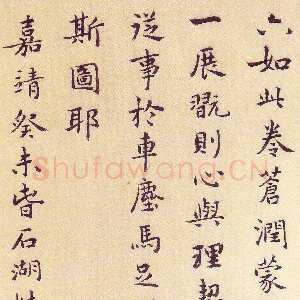 六如此卷蒼潤蒙
一展翫則心與理契
從事於車塵馬足
斯圖耶
嘉靖癸未眚石湖
Shufawang.CN